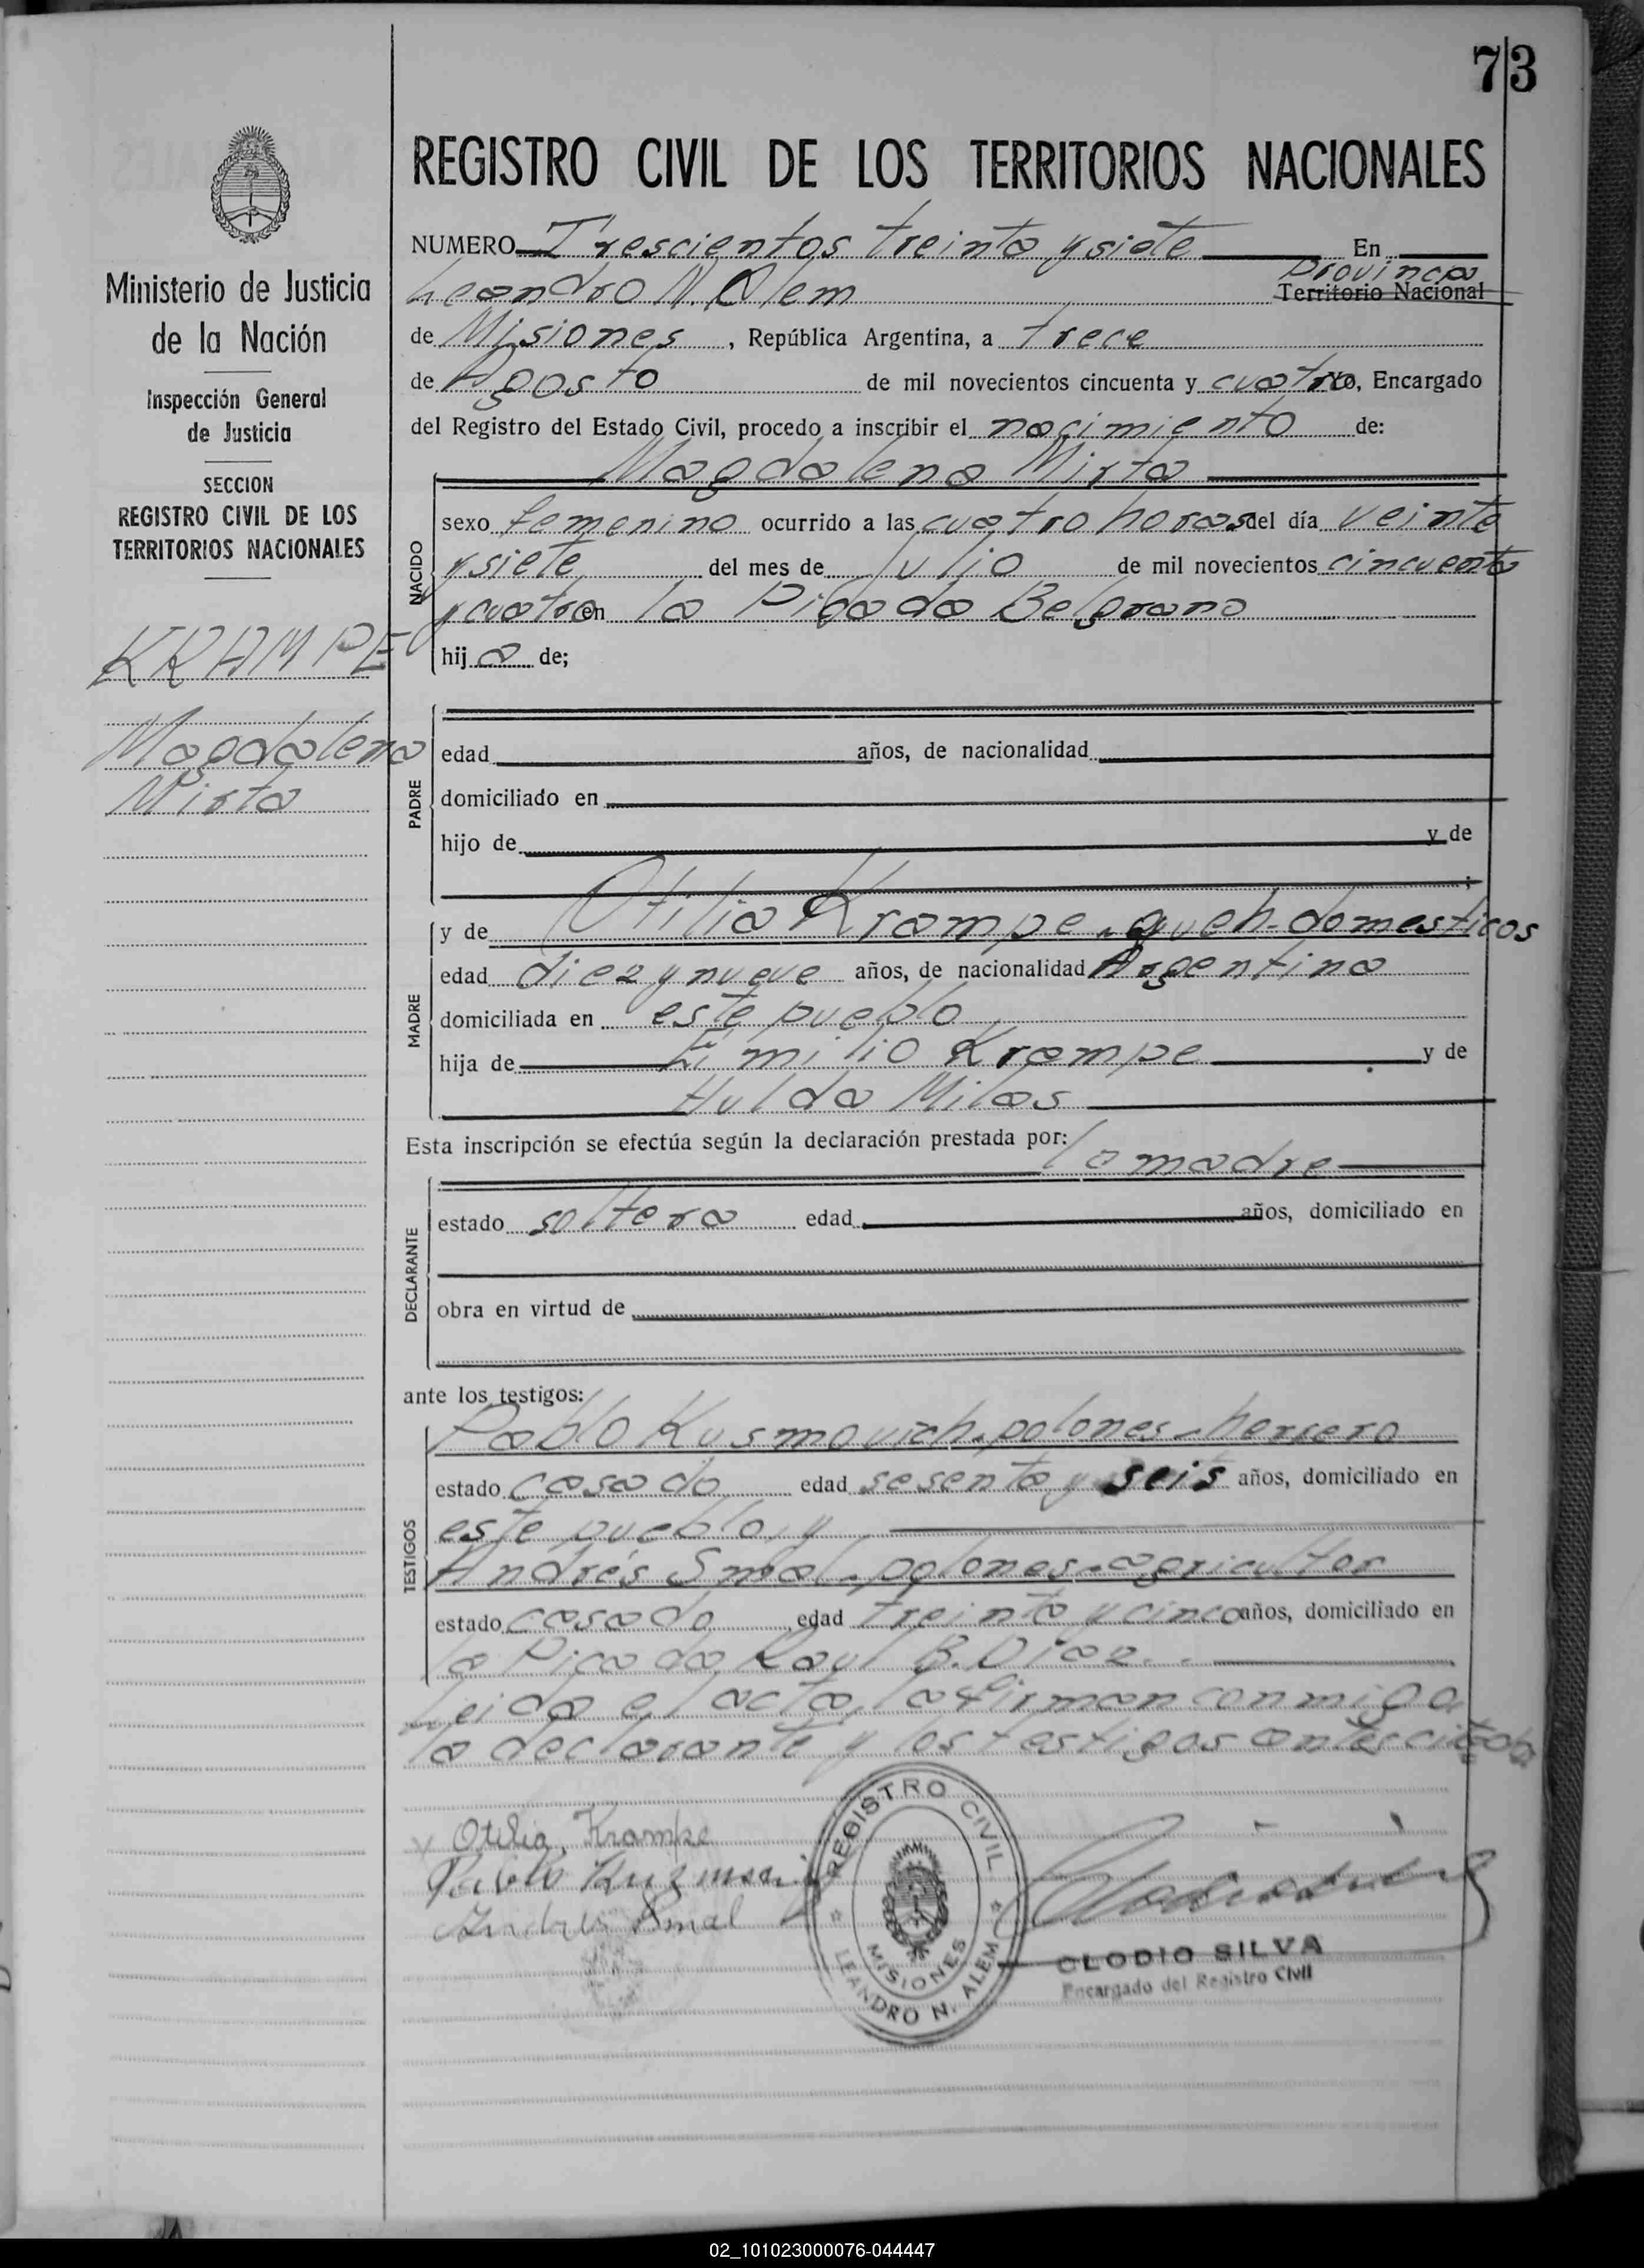 73
REGISTRO CIVIL DE LOS TERRITORIOS NACIONALES
Ministerio de Justicia
de la Nación
Inspección General
de Justicia
SECCION
REGISTRO CIVIL DE LOS
TERRITORIOS NACIONALES
KRAMPE
Magdalena
Mirta
NUMERO Trescientos treinta y siete En
Leandro N. Alem Provincia Territorio Nacional
de Misiones, República Argentina, a trece
de Agosto de mil novecientos cincuenta y cuatro, Encargado
del Registro del Estado Civil, procedo a inscribir el nacimiento de:
Magdalena Mirta
NACIDO
sexo femenino ocurrido a las cuatro horas del día veinte
y siete del mes de Julio de mil novecientos cincuenta
y cuatro en la Picada Belgrano
hij a de;
PADRE
edad años, de nacionalidad
domiciliado en
hijo de y de
;
MADRE
y de Otilia Krampe. queh-domesticos
edad diez y nueve años, de nacionalidad Argentina
domiciliada en este pueblo
hija de Emilio Krampe y de
Hulda Milas
Esta inscripción se efectúa según la declaración prestada por: la madre
DECLARANTE
estado soltera edad años, domiciliado en
obra en virtud de
ante los testigos:
TESTIGOS
Pablo Kusmovich. polones. herrero
estado casado edad sesenta y seis años, domiciliado en
este pueblo, y
Andrés Smal. polones. agricultor
estado casado edad treinta y cinco años, domiciliado en
la Picada Raul B. Diaz.
Leida el acta, la firman conmigo,
la declarante y los testigos antes citados
Otilia Krampe
Pablo
Andres Smal
REGISTRO CIVIL
MISIONES
LEANDRO N. ALEM
CLODIO SILVA
Encargado del Registro Civil
02_101023000076-044447